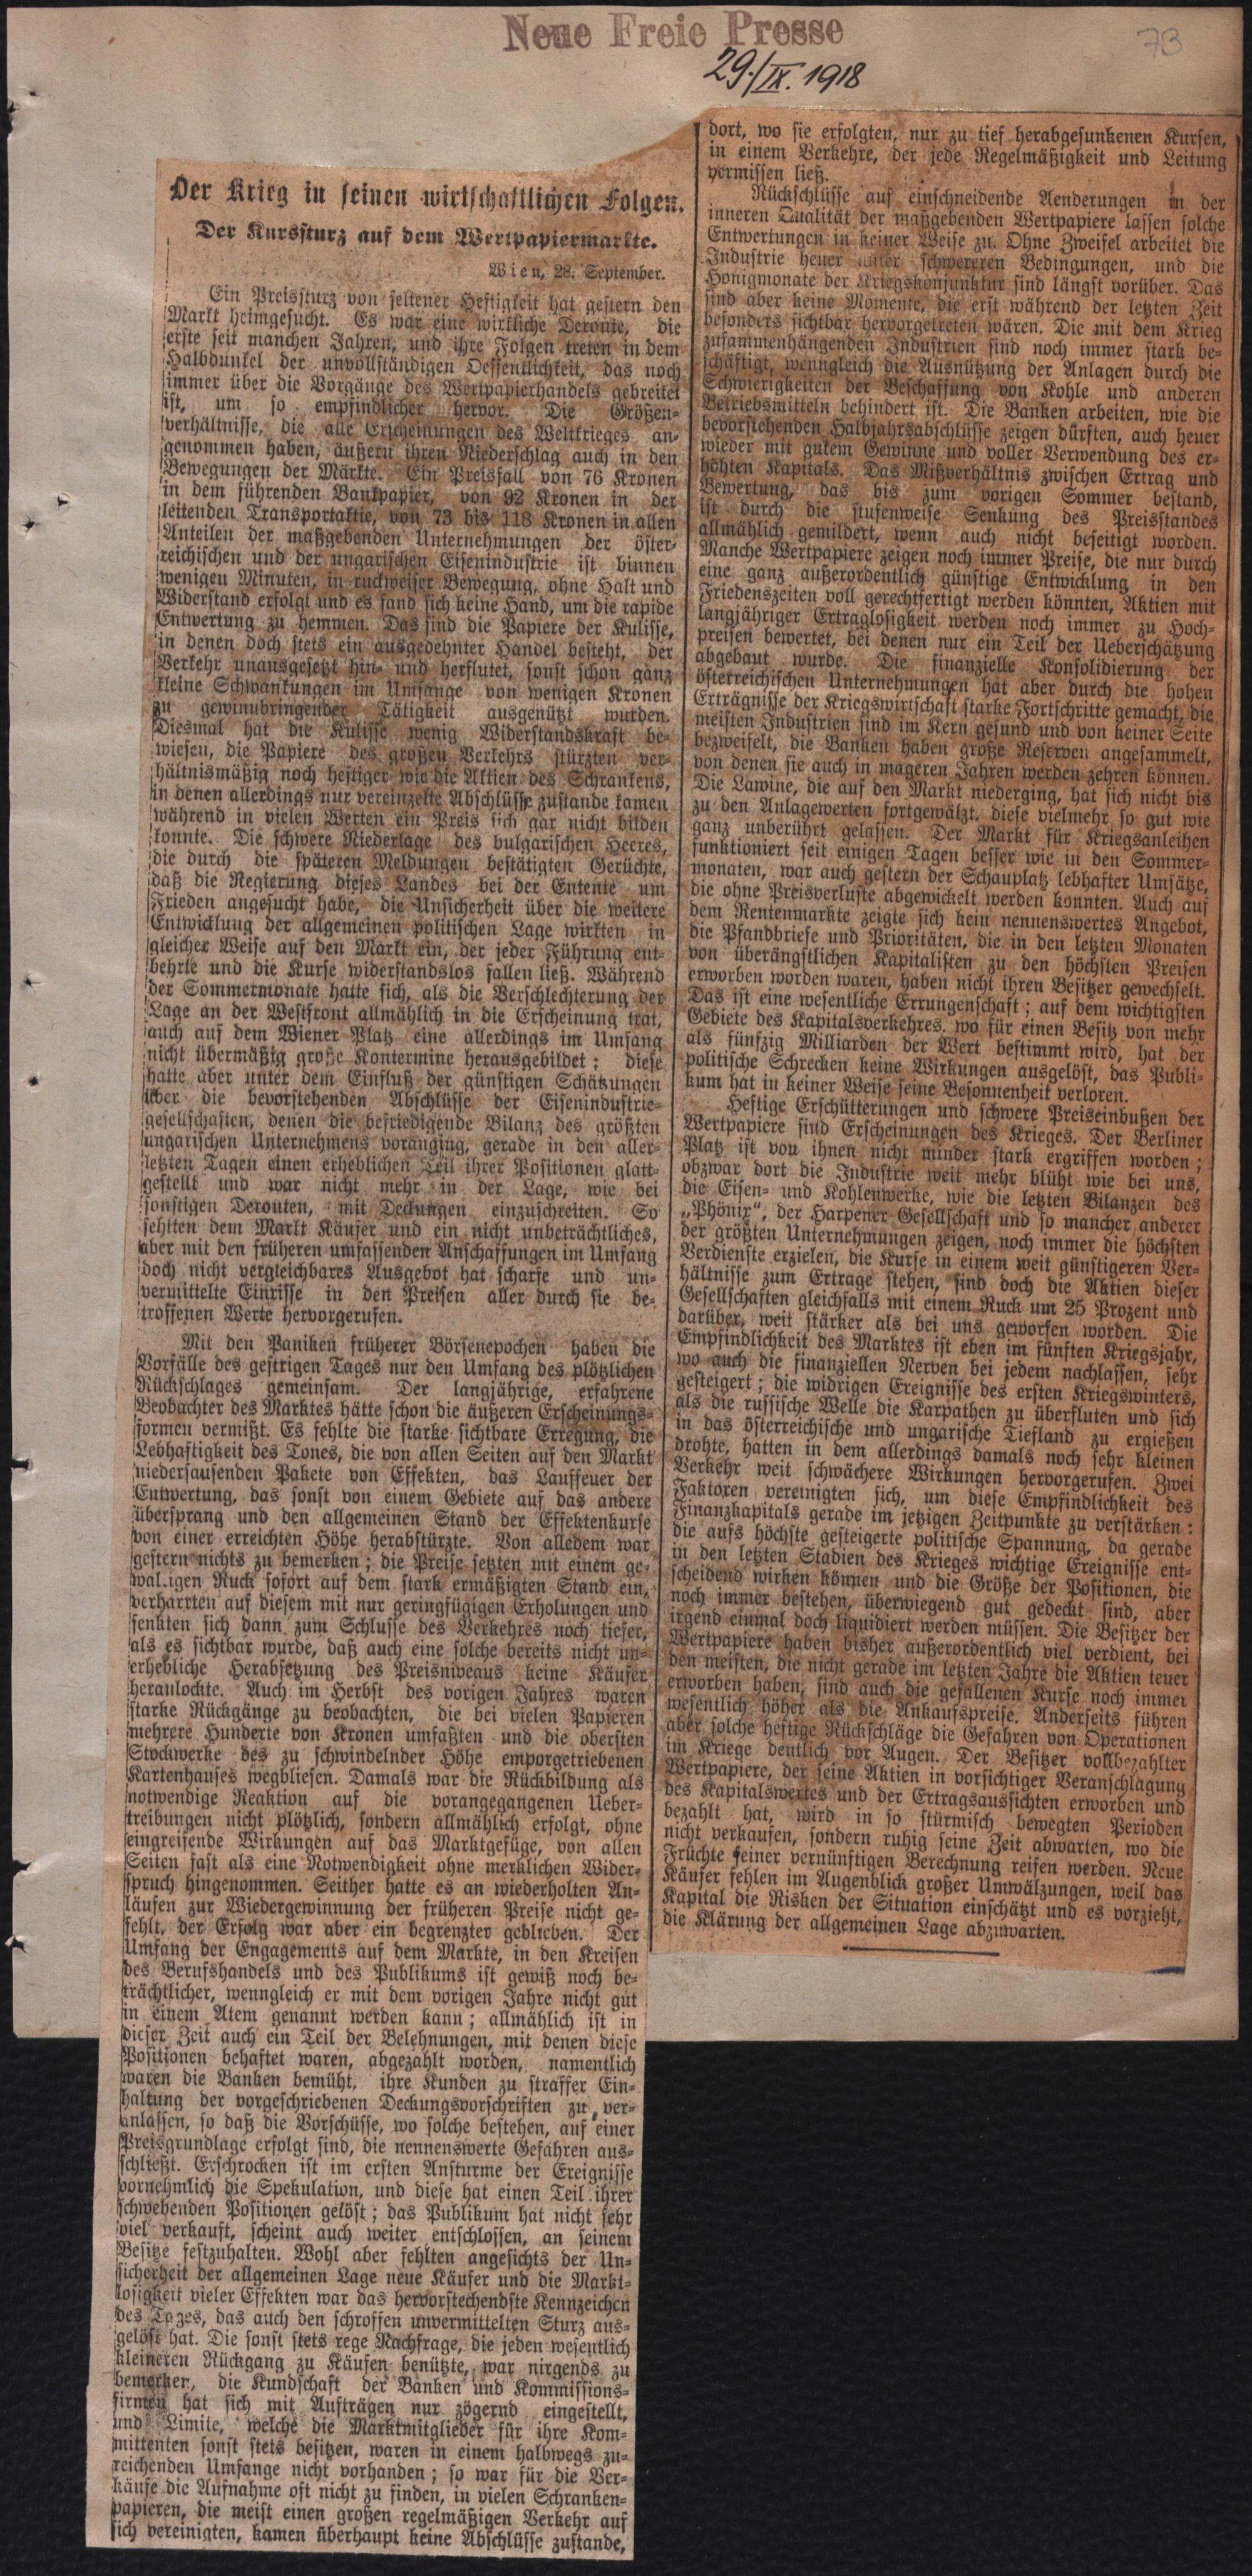 Neue Freie Presse
73
29./IX. 1918
Der Krieg in seinen wirtschaftlichen Folgen.
Der Kurssturz auf dem Wertpapiermarkte.
Wien, 28. September.
Ein Preissturz von seltener Heftigkeit hat gestern den
Markt heimgesucht. Es war eine wirkliche Deroute, die
erste seit manchen Jahren, und ihre Folgen treten in dem
Halbdunkel der unvollständigen Oeffentlichkeit, das noch
immer über die Vorgänge des Wertpapierhandels gebreitet
ist, um so empfindlicher hervor. Die Größen-
verhältnisse, die alle Erscheinungen des Weltkrieges an-
genommen haben, äußern ihren Niederschlag auch in den
Bewegungen der Märkte. Ein Preisfall von 76 Kronen
in dem führenden Bankpapier, von 92 Kronen in der
leitenden Transportaktie, von 73 bis 118 Kronen in allen
Anteilen der maßgebenden Unternehmungen der öster-
reichischen und der ungarischen Eisenindustrie ist binnen
wenigen Minuten, in ruckweiser Bewegung, ohne Halt und
Widerstand erfolgt und es fand sich keine Hand, um die rapide
Entwertung zu hemmen. Das sind die Papiere der Kulisse,
in denen doch stets ein ausgedehnter Handel besteht, der
Verkehr unausgesetzt hin- und herflutet, sonst schon ganz
kleine Schwankungen im Umfange von wenigen Kronen
zu gewinnbringender Tätigkeit ausgenützt wurden.
Diesmal hat die Kulisse wenig Widerstandskraft be-
wiesen, die Papiere des großen Verkehrs stürzten ver-
hältnismäßig noch heftiger wie die Aktien des Schrankens,
in denen allerdings nur vereinzelte Abschlüsse zustande kamen
während in vielen Werten ein Preis sich gar nicht bilden
konnte. Die schwere Niederlage des bulgarischen Heeres,
die durch die späteren Meldungen bestätigten Gerüchte,
daß die Regierung dieses Landes bei der Entente um
Frieden angesucht habe, die Unsicherheit über die weitere
Entwicklung der allgemeinen politischen Lage wirkten in
gleicher Weise auf den Markt ein, der jeder Führung ent-
behrte und die Kurse widerstandslos fallen ließ. Während
der Sommermonate hatte sich, als die Verschlechterung der
Lage an der Westfront allmählich in die Erscheinung trat,
auch auf dem Wiener Platz eine allerdings im Umfang
nicht übermäßig große Kontermine herausgebildet; diese
hatte aber unter dem Einfluß der günstigen Schätzungen
über die bevorstehenden Abschlüsse der Eisenindustrie-
gesellschaften, denen die befriedigende Bilanz des größten
ungarischen Unternehmens voranging, gerade in den aller-
letzten Tagen einen erheblichen Teil ihrer Positionen glatt-
gestellt und war nicht mehr in der Lage, wie bei
sonstigen Derouten, mit Deckungen einzuschreiten. So
fehlten dem Markt Käufer und ein nicht unbeträchtliches,
aber mit den früheren umfassenden Anschaffungen im Umfang
doch nicht vergleichbares Ausgebot hat scharfe und un-
vermittelte Einrisse in den Preisen aller durch sie be-
troffenen Werte hervorgerufen.
Mit den Paniken früherer Börsenepochen haben die
Vorfälle des gestrigen Tages nur den Umfang des plötzlichen
Rückschlages gemeinsam. Der langjährige, erfahrene
Beobachter des Marktes hätte schon die äußeren Erscheinungs-
formen vermißt. Es fehlte die starke sichtbare Erregung, die
Lebhaftigkeit des Tones, die von allen Seiten auf den Markt
niedersausenden Pakete von Effekten, das Lauffeuer der
Entwertung, das sonst von einem Gebiete auf das andere
übersprang und den allgemeinen Stand der Effektenkurse
von einer erreichten Höhe herabstürzte. Von alledem war
gestern nichts zu bemerken; die Preise setzten mit einem ge-
waltigen Ruck sofort auf dem stark ermäßigten Stand ein,
verharrten auf diesem mit nur geringfügigen Erholungen und
senkten sich dann zum Schlusse des Verkehres noch tiefer,
als es sichtbar wurde, daß auch eine solche bereits nicht un-
erhebliche Herabsetzung des Preisniveaus keine Käufer
heranlockte. Auch im Herbst des vorigen Jahres waren
starke Rückgänge zu beobachten, die bei vielen Papieren
mehrere Hunderte von Kronen umfaßten und die obersten
Stockwerke des zu schwindelnder Höhe emporgetriebenen
Kartenhauses wegbliesen. Damals war die Rückbildung als
notwendige Reaktion auf die vorangegangenen Ueber-
treibungen nicht plötzlich, sondern allmählich erfolgt, ohne
eingreifende Wirkungen auf das Marktgefüge, von allen
Seiten fast als eine Notwendigkeit ohne merklichen Wider-
spruch hingenommen. Seither hatte es an wiederholten An-
läufen zur Wiedergewinnung der früheren Preise nicht ge-
fehlt, der Erfolg war aber ein begrenzter geblieben. Der
Umfang der Engagements auf dem Markte, in den Kreisen
des Berufshandels und des Publikums ist gewiß noch be-
trächtlicher, wenngleich er mit dem vorigen Jahre nicht gut
in einem Atem genannt werden kann; allmählich ist in
dieser Zeit auch ein Teil der Belehnungen, mit denen diese
Positionen behaftet waren, abgezahlt worden, namentlich
waren die Banken bemüht, ihre Kunden zu straffer Ein-
haltung der vorgeschriebenen Deckungsvorschriften zu ver-
anlassen, so daß die Vorschüsse, wo solche bestehen, auf einer
Preisgrundlage erfolgt sind, die nennenswerte Gefahren aus-
schließt. Erschrocken ist im ersten Ansturme der Ereignisse
vornehmlich die Spekulation, und diese hat einen Teil ihrer
schwebenden Positionen gelöst; das Publikum hat nicht sehr
viel verkauft, scheint auch weiter entschlossen, an seinem
Besitze festzuhalten. Wohl aber fehlten angesichts der Un-
sicherheit der allgemeinen Lage neue Käufer und die Markt-
losigkeit vieler Effekten war das hervorstechendste Kennzeichen
des Tages, das auch den schroffen unvermittelten Sturz aus-
gelöst hat. Die sonst stets rege Nachfrage, die jeden wesentlich
kleineren Rückgang zu Käufen benützte, war nirgends zu
bemerken, die Kundschaft der Banken und Kommissions-
firmen hat sich mit Aufträgen nur zögernd eingestellt,
und Limite, welche die Marktmitglieder für ihre Kom-
mittenten sonst stets besitzen, waren in einem halbwegs zu-
reichenden Umfange nicht vorhanden; so war für die Ver-
käufe die Aufnahme oft nicht zu finden, in vielen Schranken-
papieren, die meist einen großen regelmäßigen Verkehr auf
sich vereinigten, kamen überhaupt keine Abschlüsse zustande,
dort, wo sie erfolgten, nur zu tief herabgesunkenen Kursen,
in einem Verkehre, der jede Regelmäßigkeit und Leitung
vermissen ließ.
Rückschlüsse auf einschneidende Aenderungen in der
inneren Qualität der maßgebenden Wertpapiere lassen solche
Entwertungen in keiner Weise zu. Ohne Zweifel arbeitet die
Industrie heuer unter schwereren Bedingungen, und die
Honigmonate der Kriegskonjunktur sind längst vorüber. Das
sind aber keine Momente, die erst während der letzten Zeit
besonders sichtbar hervorgetreten wären. Die mit dem Krieg
zusammenhängenden Industrien sind noch immer stark be-
schäftigt, wenngleich die Ausnützung der Anlagen durch die
Schwierigkeiten der Beschaffung von Kohle und anderen
Betriebsmitteln behindert ist. Die Banken arbeiten, wie die
bevorstehenden Halbjahrsabschlüsse zeigen dürften, auch heuer
wieder mit gutem Gewinne und voller Verwendung des er-
höhten Kapitals. Das Mißverhältnis zwischen Ertrag und
Bewertung, das bis zum vorigen Sommer bestand,
ist durch die stufenweise Senkung des Preisstandes
allmählich gemildert, wenn auch nicht beseitigt worden.
Manche Wertpapiere zeigen noch immer Preise, die nur durch
eine ganz außerordentlich günstige Entwicklung in den
Friedenszeiten voll gerechtfertigt werden könnten, Aktien mit
langjähriger Ertraglosigkeit werden noch immer zu Hoch-
preisen bewertet, bei denen nur ein Teil der Ueberschätzung
abgebaut wurde. Die finanzielle Konsolidierung der
österreichischen Unternehmungen hat aber durch die hohen
Erträgnisse der Kriegswirtschaft starke Fortschritte gemacht, die
meisten Industrien sind im Kern gesund und von keiner Seite
bezweifelt, die Banken haben große Reserven angesammelt,
von denen sie auch in mageren Jahren werden zehren können.
Die Lawine, die auf den Markt niederging, hat sich nicht bis
zu den Anlagewerten fortgewälzt, diese vielmehr so gut wie
ganz unberührt gelassen. Der Markt für Kriegsanleihen
funktioniert seit einigen Tagen besser wie in den Sommer-
monaten, war auch gestern der Schauplatz lebhafter Umsätze,
die ohne Preisverluste abgewickelt werden konnten. Auch auf
dem Rentenmarkte zeigte sich kein nennenswertes Angebot,
die Pfandbriefe und Prioritäten, die in den letzten Monaten
von überängstlichen Kapitalisten zu den höchsten Preisen
erworben worden waren, haben nicht ihren Besitzer gewechselt.
Das ist eine wesentliche Errungenschaft; auf dem wichtigsten
Gebiete des Kapitalsverkehres, wo für einen Besitz von mehr
als fünfzig Milliarden der Wert bestimmt wird, hat der
politische Schrecken keine Wirkungen ausgelöst, das Publi-
kum hat in keiner Weise seine Besonnenheit verloren.
Heftige Erschütterungen und schwere Preiseinbußen der
Wertpapiere sind Erscheinungen des Krieges. Der Berliner
Platz ist von ihnen nicht minder stark ergriffen worden;
obzwar dort die Industrie weit mehr blüht wie bei uns,
die Eisen- und Kohlenwerke, wie die letzten Bilanzen des
„Phönix“, der Harpener Gesellschaft und so mancher anderer
der größten Unternehmungen zeigen, noch immer die höchsten
Verdienste erzielen, die Kurse in einem weit günstigeren Ver-
hältnisse zum Ertrage stehen, sind doch die Aktien dieser
Gesellschaften gleichfalls mit einem Ruck um 25 Prozent und
darüber, weit stärker als bei uns geworfen worden. Die
Empfindlichkeit des Marktes ist eben im fünften Kriegsjahr,
wo auch die finanziellen Nerven bei jedem nachlassen, sehr
gesteigert; die widrigen Ereignisse des ersten Kriegswinters,
als die russische Welle die Karpathen zu überfluten und sich
in das österreichische und ungarische Tiefland zu ergießen
drohte, hatten in dem allerdings damals noch sehr kleinen
Verkehr weit schwächere Wirkungen hervorgerufen. Zwei
Faktoren vereinigten sich, um diese Empfindlichkeit des
Finanzkapitals gerade im jetzigen Zeitpunkte zu verstärken:
die aufs höchste gesteigerte politische Spannung, da gerade
in den letzten Stadien des Krieges wichtige Ereignisse ent-
scheidend wirken können und die Größe der Positionen, die
noch immer bestehen, überwiegend gut gedeckt sind, aber
irgend einmal doch liquidiert werden müssen. Die Besitzer der
Wertpapiere haben bisher außerordentlich viel verdient, bei
den meisten, die nicht gerade im letzten Jahre die Aktien teuer
erworben haben, sind auch die gefallenen Kurse noch immer
wesentlich höher als die Ankaufspreise. Anderseits führen
aber solche heftige Rückschläge die Gefahren von Operationen
im Kriege deutlich vor Augen. Der Besitzer vollbezahlter
Wertpapiere, der seine Aktien in vorsichtiger Veranschlagung
des Kapitalswertes und der Ertragsaussichten erworben und
bezahlt hat, wird in so stürmisch bewegten Perioden
nicht verkaufen, sondern ruhig seine Zeit abwarten, wo die
Früchte seiner vernünftigen Berechnung reifen werden. Neue
Käufer fehlen im Augenblick großer Umwälzungen, weil das
Kapital die Risken der Situation einschätzt und es vorzieht,
die Klärung der allgemeinen Lage abzuwarten.